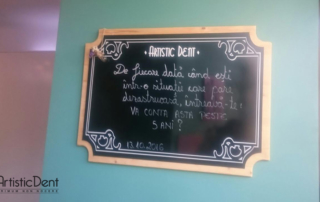 • ARTISTIC DENT •
De fiecare dată când ești
într-o situație care pare
dezastruoasă, întreabă-te:
VA CONTA ASTA PESTE
5 ANI?
13.10.2016
ArtisticDent